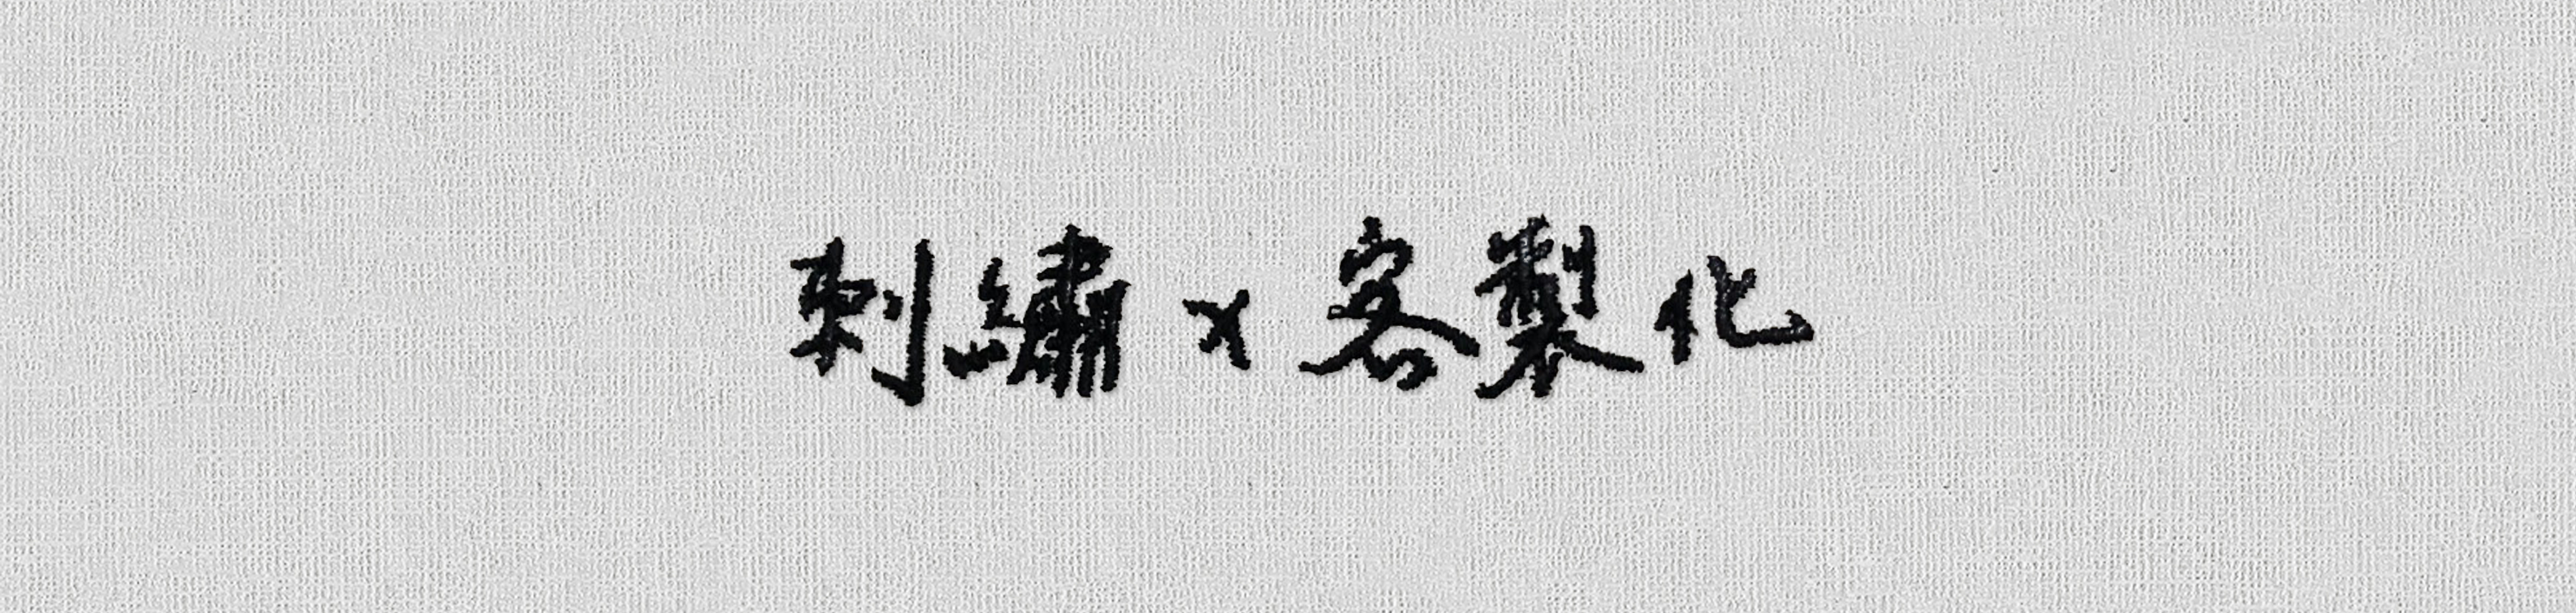 刺繡 x 客製化